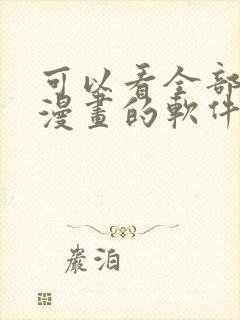 可以看全部
漫畫的軟件
嚴泊